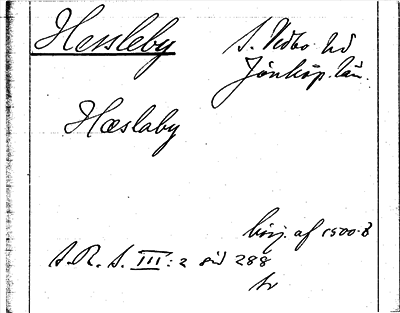 Hessleby
S. Vedbo hd
Jönköp. län.
Hæslaby
börj. af 1500-t
S.R.S. III:2 sid 288
tr